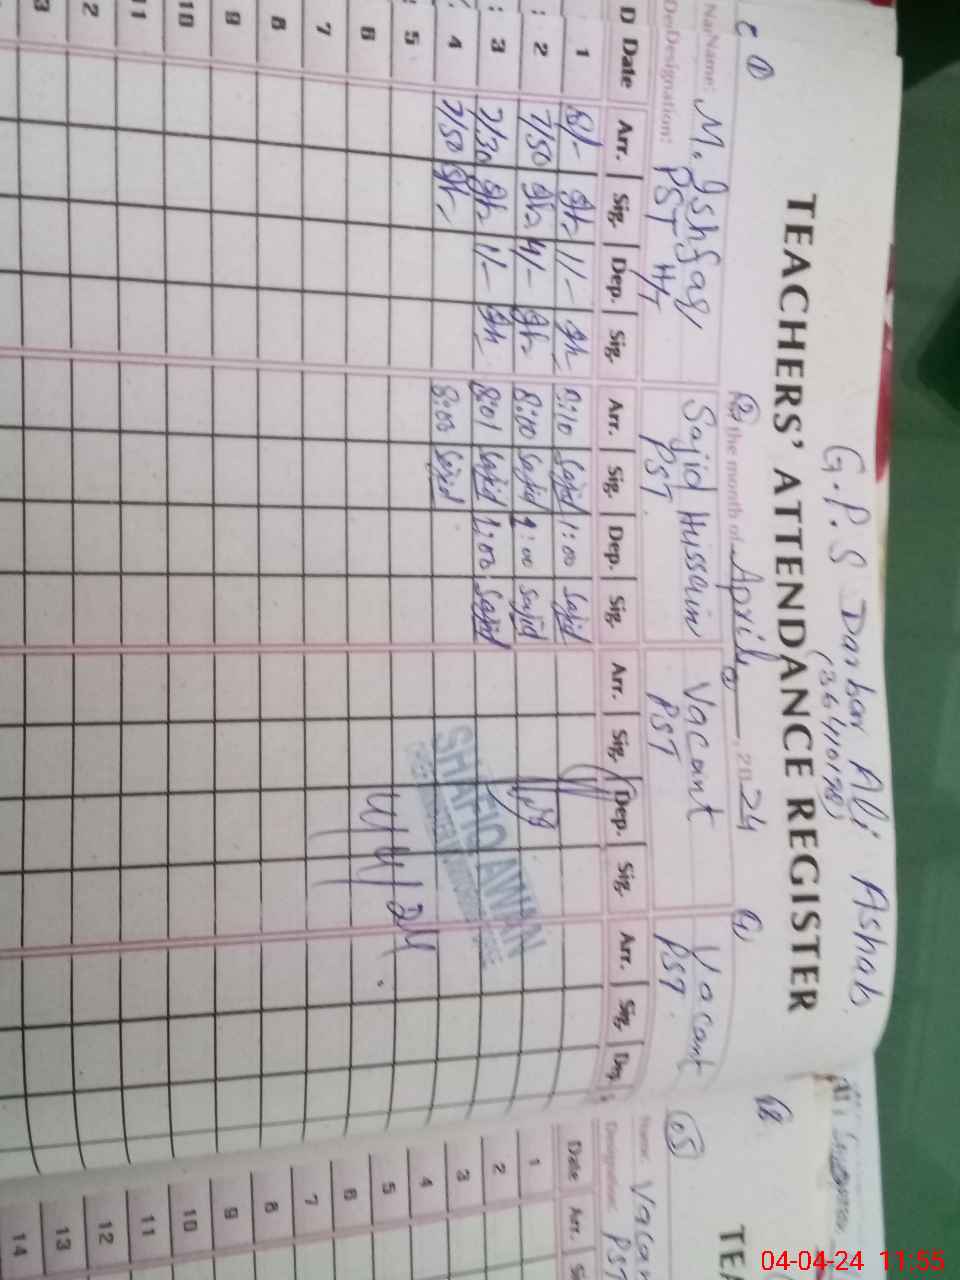 G.P.S Darbar Ali Ashab
(36410198)
TEACHERS' ATTENDANCE REGISTER
the month of April, 2024
Name: M. Ishfaq
Designation: PST H/T
Sajid Hussain
PST
Vacant
PST
Vacant
PST
Date Arr. Sig. Dep. Sig. Arr. Sig. Dep. Sig. Arr. Sig. Dep. Sig. Arr. Sig. Dep.
1 8/- 11/- 8:10 Sajid 1:00 Sajid
2 7/50 4/- 8:00 Sajid Sajid
3 7/30 1/- 8:01 Sajid 1:00 Sajid
4 7/50 8:00 Sajid
5
6
7
8
9
10
11
SHAFIQ AWAN
4/4/24
05
Name: Vacant
Designation: PST
Date Arr.
1
2
3
4
5
6
7
8
9
10
11
12
13
14
04-04-24 11:55